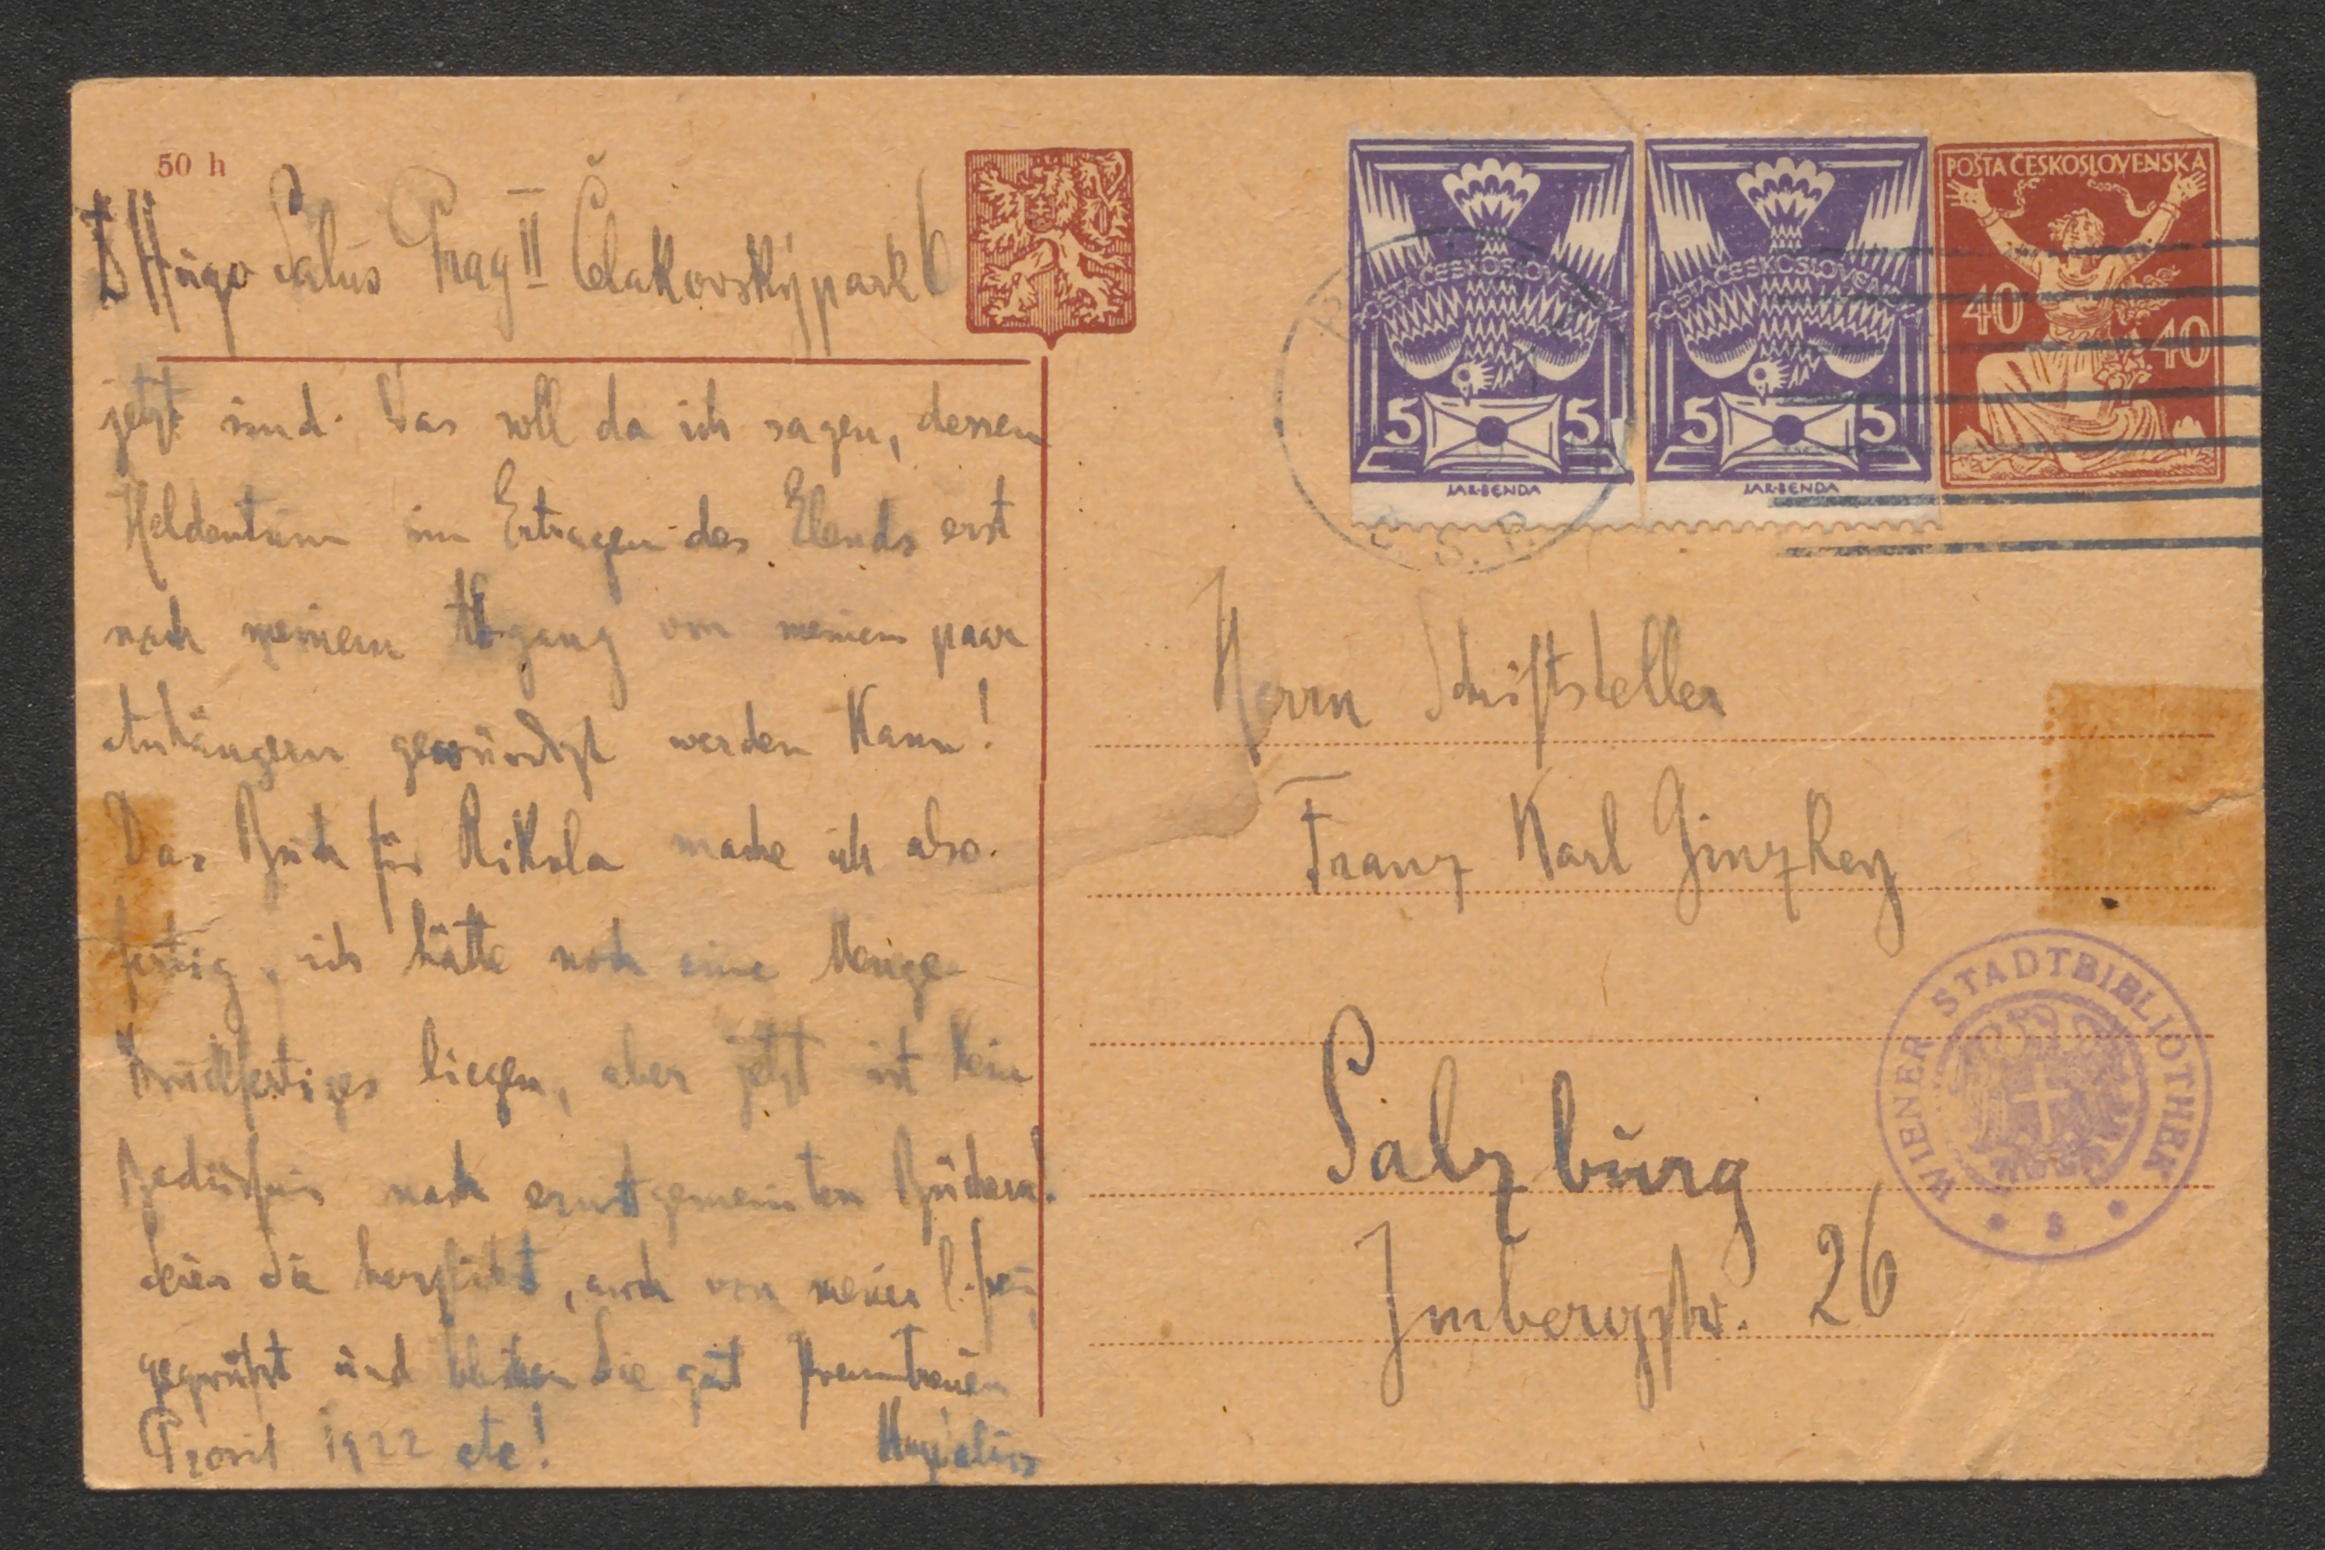 50 h
Dr Hugo Salus Prag II Čelakovskýpark 6
jetzt sind. Was soll da ich sagen, dessen
Heldentum im Ertragen des Elends erst
nach meinem Abgang von meinen paar
Anhängern gewürdigt werden kann!
Das Buch für Rikola mache ich also
fertig, ich hätte noch eine Menge
Druckfertiges liegen, aber jetzt ist kein
Bedürfnis nach ernstgemeinten Büchern.
Seien Sie herzlichst, auch von meiner l. Frau,
gegrüßt und bleiben Sie gut Ihrem treuen
Prosit 1922 etc! Hugo Salus
POŠTA ČESKOSLOVENSKÁ
5 5
JAR. BENDA
POŠTA ČESKOSLOVENSKÁ
5 5
JAR. BENDA
POŠTA ČESKOSLOVENSKÁ
40 40
Č.S.R.
Herrn Schriftsteller
Franz Karl Ginzkey
Salzburg
Imbergstr. 26
WIENER STADTBIBLIOTHEK
* S *